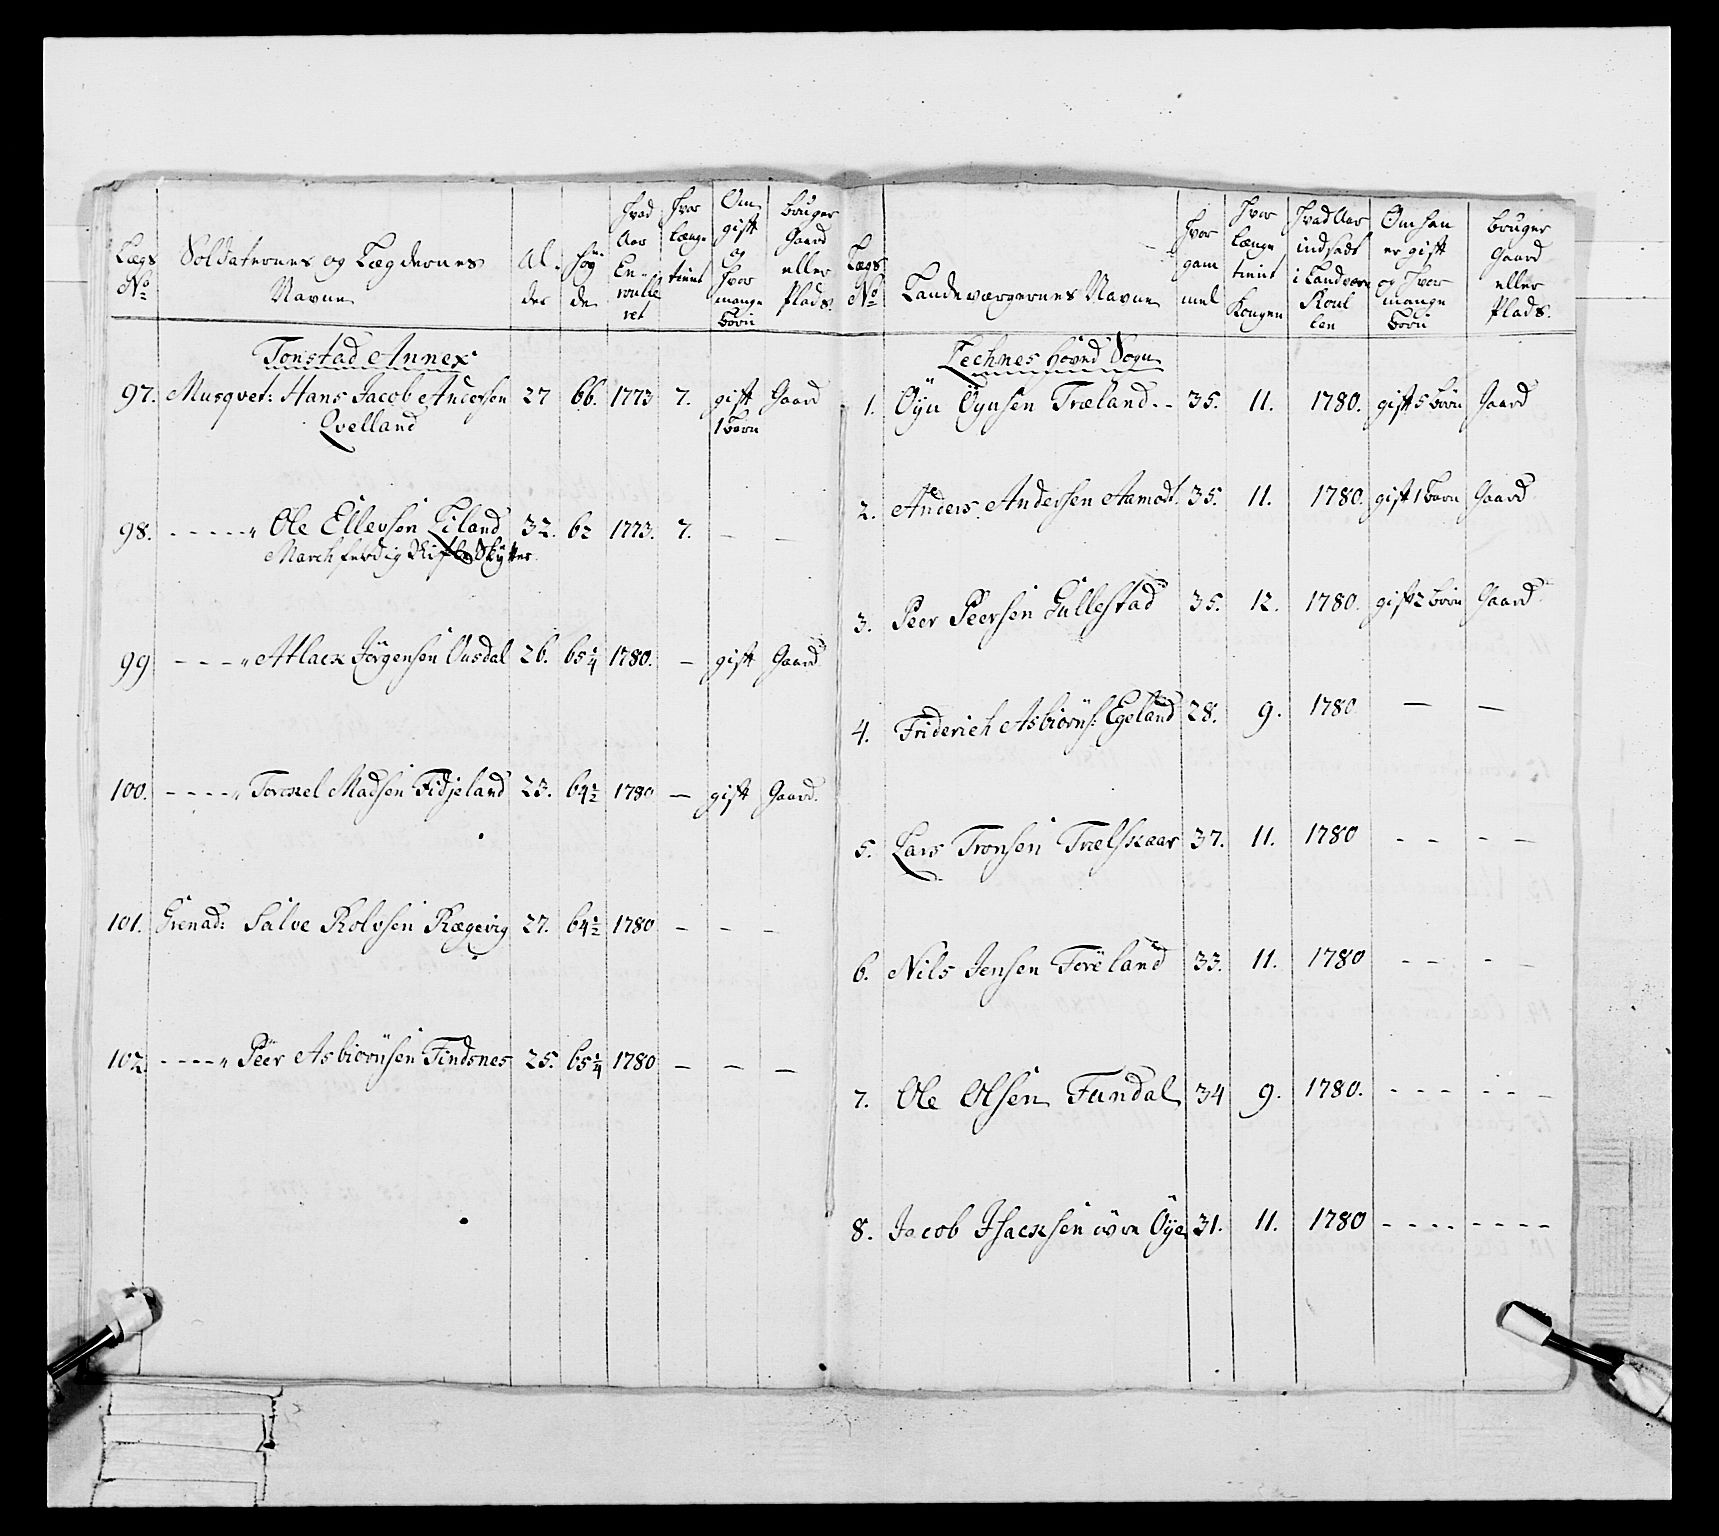 Lægs No
Soldaternes og Lægdernes Navne
Al-der
Høy-de
Hvad Aar En-roulle-ret
Hvor længe tient
Om gift og hvor mange børn
bruger Gaard eller Plads.
Tonstad Annex
97. Musqvet: Hans Jacob Andersen 27 66. 1773 7. gift Gaard
Qvelland 1 barn
98. - - - - - " Ole Ellevsen Liland 32. 62 1773. 7. - -
March ferdig Skifte Skytter.
99 - - - " Atlack Jörgensen Ousdal 26. 65 1/4 1780. - gift Gaard
100. - - - - " Torckel Madsen Fidjeland 23. 64 1/2 1780 - gift Gaard.
101. Grenad: Salve Rolvsen Rægevig 27. 64 1/2 1780 - - -
102. - - - - " Peer Asbiörnsen Findsnes 25. 65 1/4 1780 - - -
Lægs No
Landeværgernes Navne
Hvor gam mel
Hvor længe tient Kongen
Hvad Aar indsadt i Landværn Roul len
Om han er gift og Hvor mange børn
bruger Gaard eller Plads.
Qvinnes Hoved Sogn
1. Öyu Öyusen Træland. - 35. 11. 1780. gift 5 börn Gaard
2. Anders Andersen Aamodt. 35. 11. 1780. gift 1 barn Gaard
3. Peer Peersen Gullestad 35. 12. 1780. gift 2 börn Gaard
4. Friderich Asbiörns: Egeland 28. 9. 1780 - -
5. Lars Tronsen Trælskaar 37. 11. 1780 - - - -
6. Nils Jensen Föreland 33. 11. 1780 - - - -
7. Ole Olsen Fundal 34 9. 1780. - - - - - -
8. Jacob Isacksen övre Öye 31. 11. 1780 - - - - - - - -